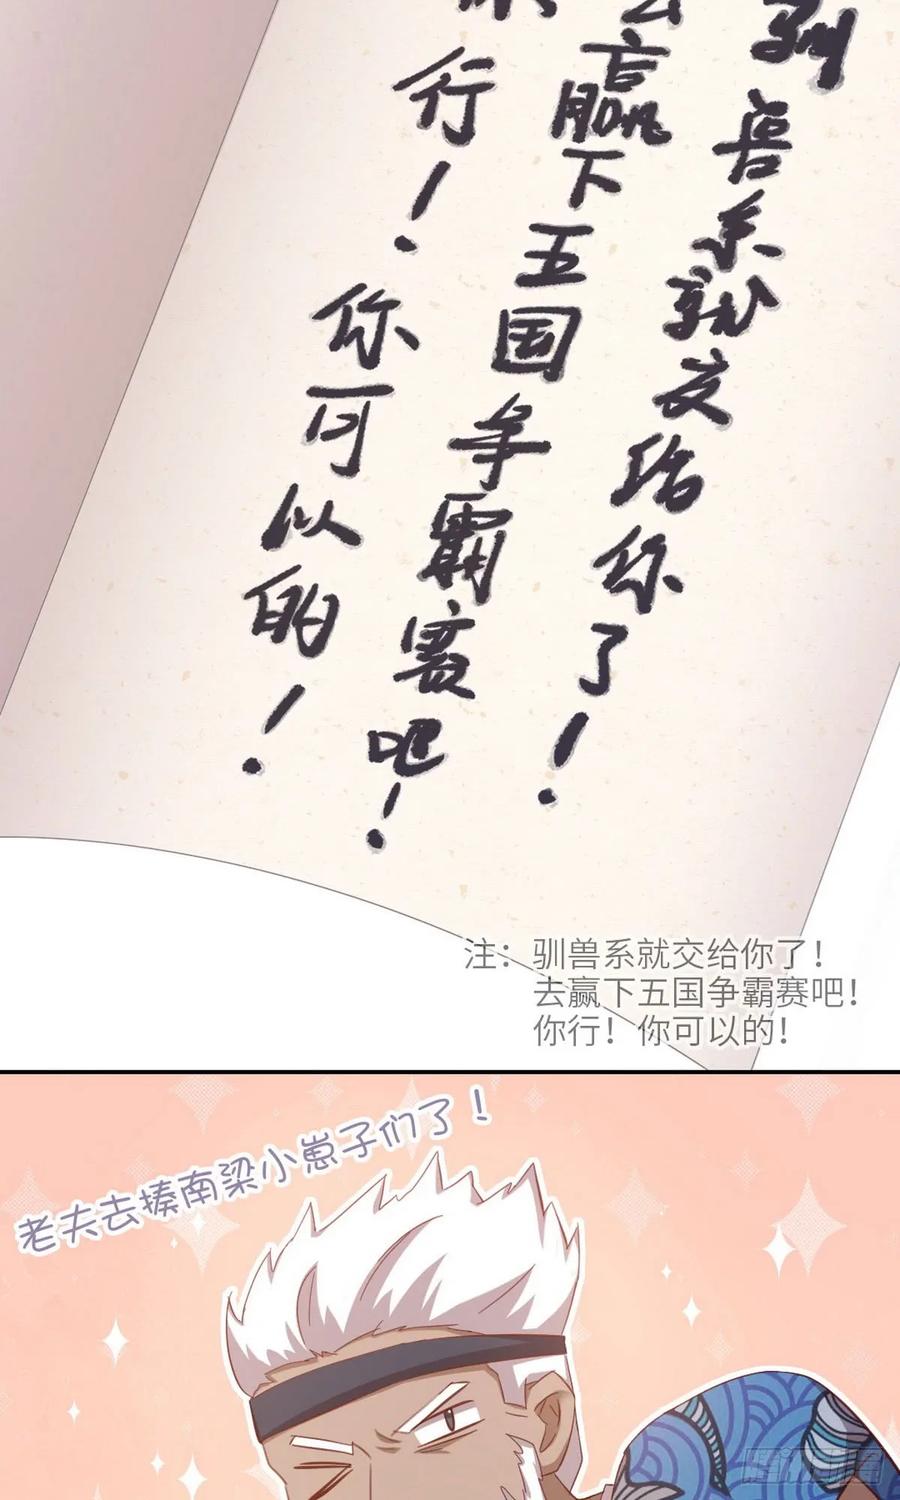 驯兽系就交给你了！
去赢下五国争霸赛吧！
你行！你可以的！
注：驯兽系就交给你了！
去赢下五国争霸赛吧！
你行！你可以的！
老夫去揍南梁小崽子们了！